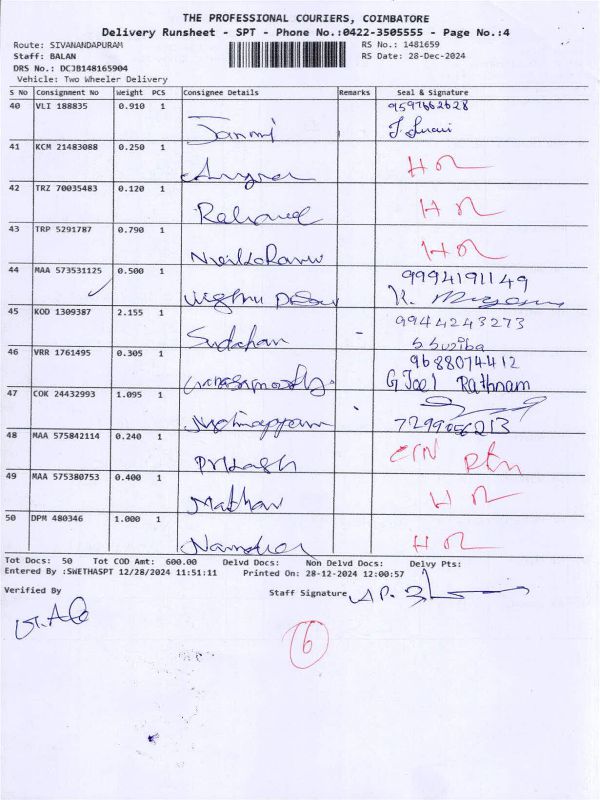 THE PROFESSIONAL COURIERS, COIMBATORE
Delivery Runsheet - SPT - Phone No.:0422-3505555 - Page No.:4
Route: SIVANANDAPURAM RS No.: 1481659
Staff: BALAN RS Date: 28-Dec-2024
DRS No.: DCJB148165904
Vehicle: Two Wheeler Delivery
S No Consignment No Weight PCS Consignee Details Remarks Seal & Signature
40 VLI 188835 0.910 1 9597662628
41 KCM 21483088 0.250 1 H
42 TRZ 70035483 0.120 1 H
43 TRP 5291787 0.790 1 H
44 MAA 573531125 0.500 1 9994191149
K.
45 KOD 1309387 2.155 1 Sudahan 9944243273
46 VRR 1761495 0.305 1 9688074412
G Joel Rathnam
47 COK 24432993 1.095 1 7299056213
48 MAA 575842114 0.240 1 Prkash
49 MAA 575380753 0.400 1 Mathav H
50 DPM 480346 1.000 1 H
Tot Docs: 50 Tot COD Amt: 600.00 Delvd Docs: Non Delvd Docs: Delvy Pts:
Entered By :SWETHASPT 12/28/2024 11:51:11 Printed On: 28-12-2024 12:00:57
Verified By Staff Signature
6